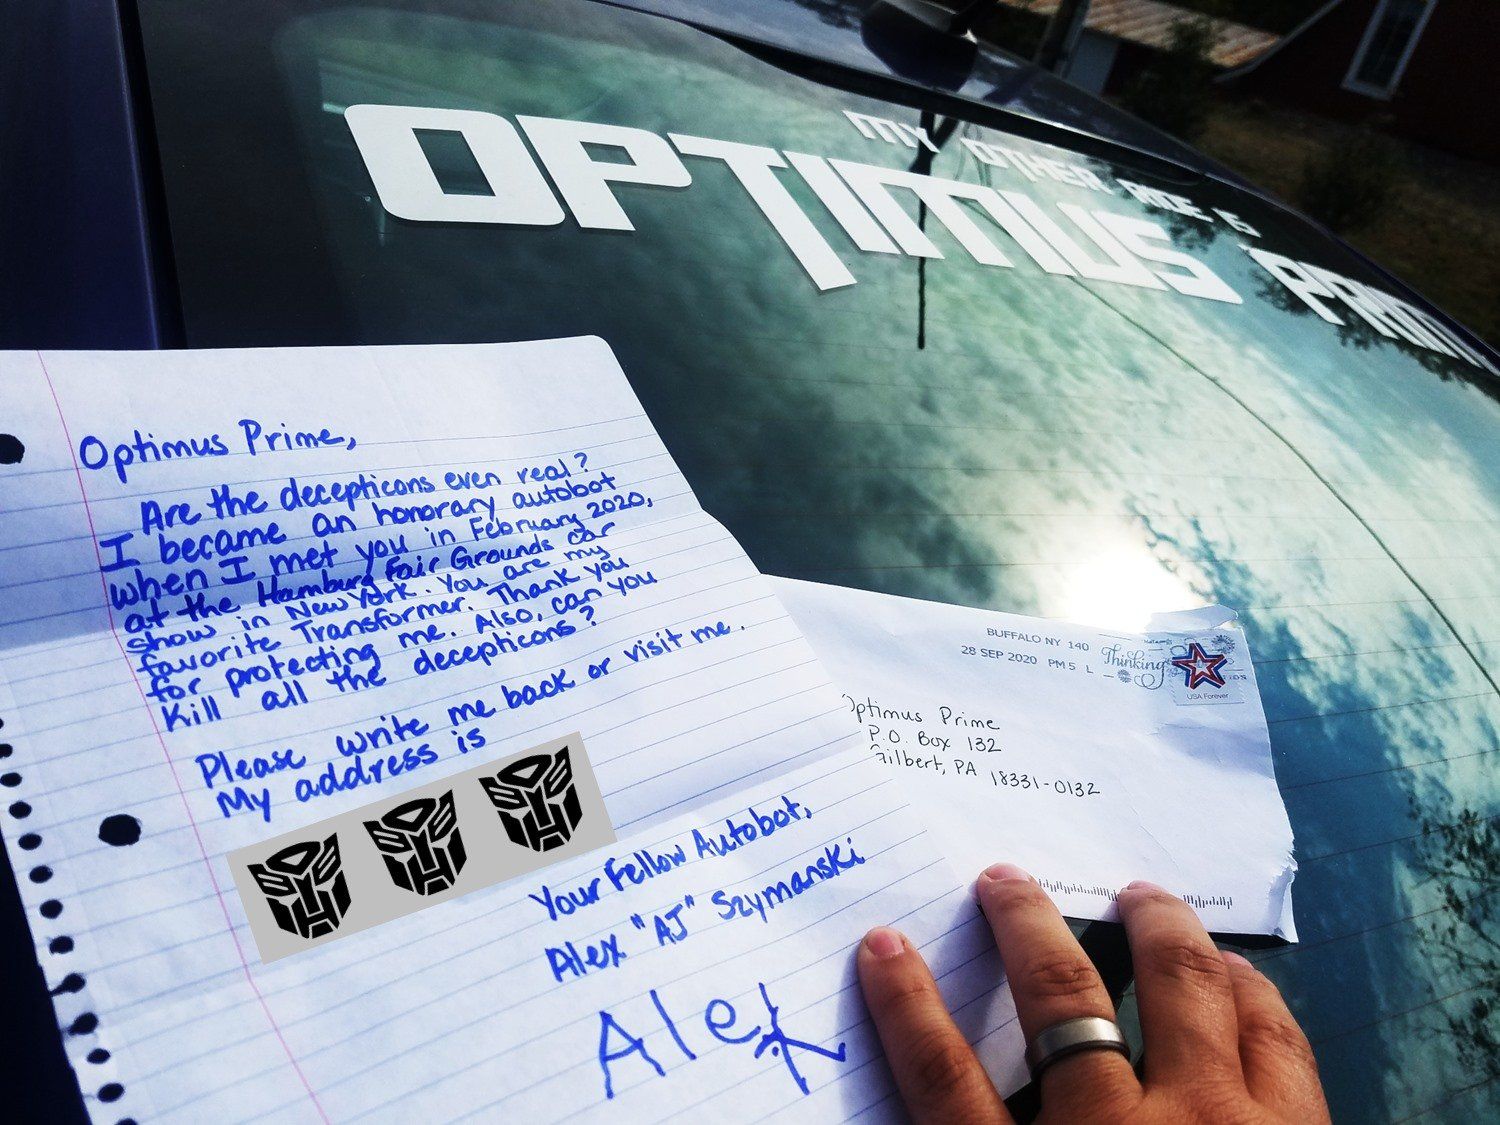 MY OTHER RIDE IS
OPTIMUS PRIM
Optimus Prime,
Are the decepticons even real?
I became an honorary autobot
when I met you in February 2020,
at the Hamburg Fair Grounds car
show in New York. You are my
favorite Transformer. Thank you
for protecting me. Also, can you
kill all the decepticons?
Please write me back or visit me.
My address is
Your Fellow Autobot,
Alex "AJ" Szymanski
Alex
BUFFALO NY 140
28 SEP 2020 PM 5 L
Thinking
USA Forever
Optimus Prime
P.O. Box 132
Gilbert, PA 18331-0132